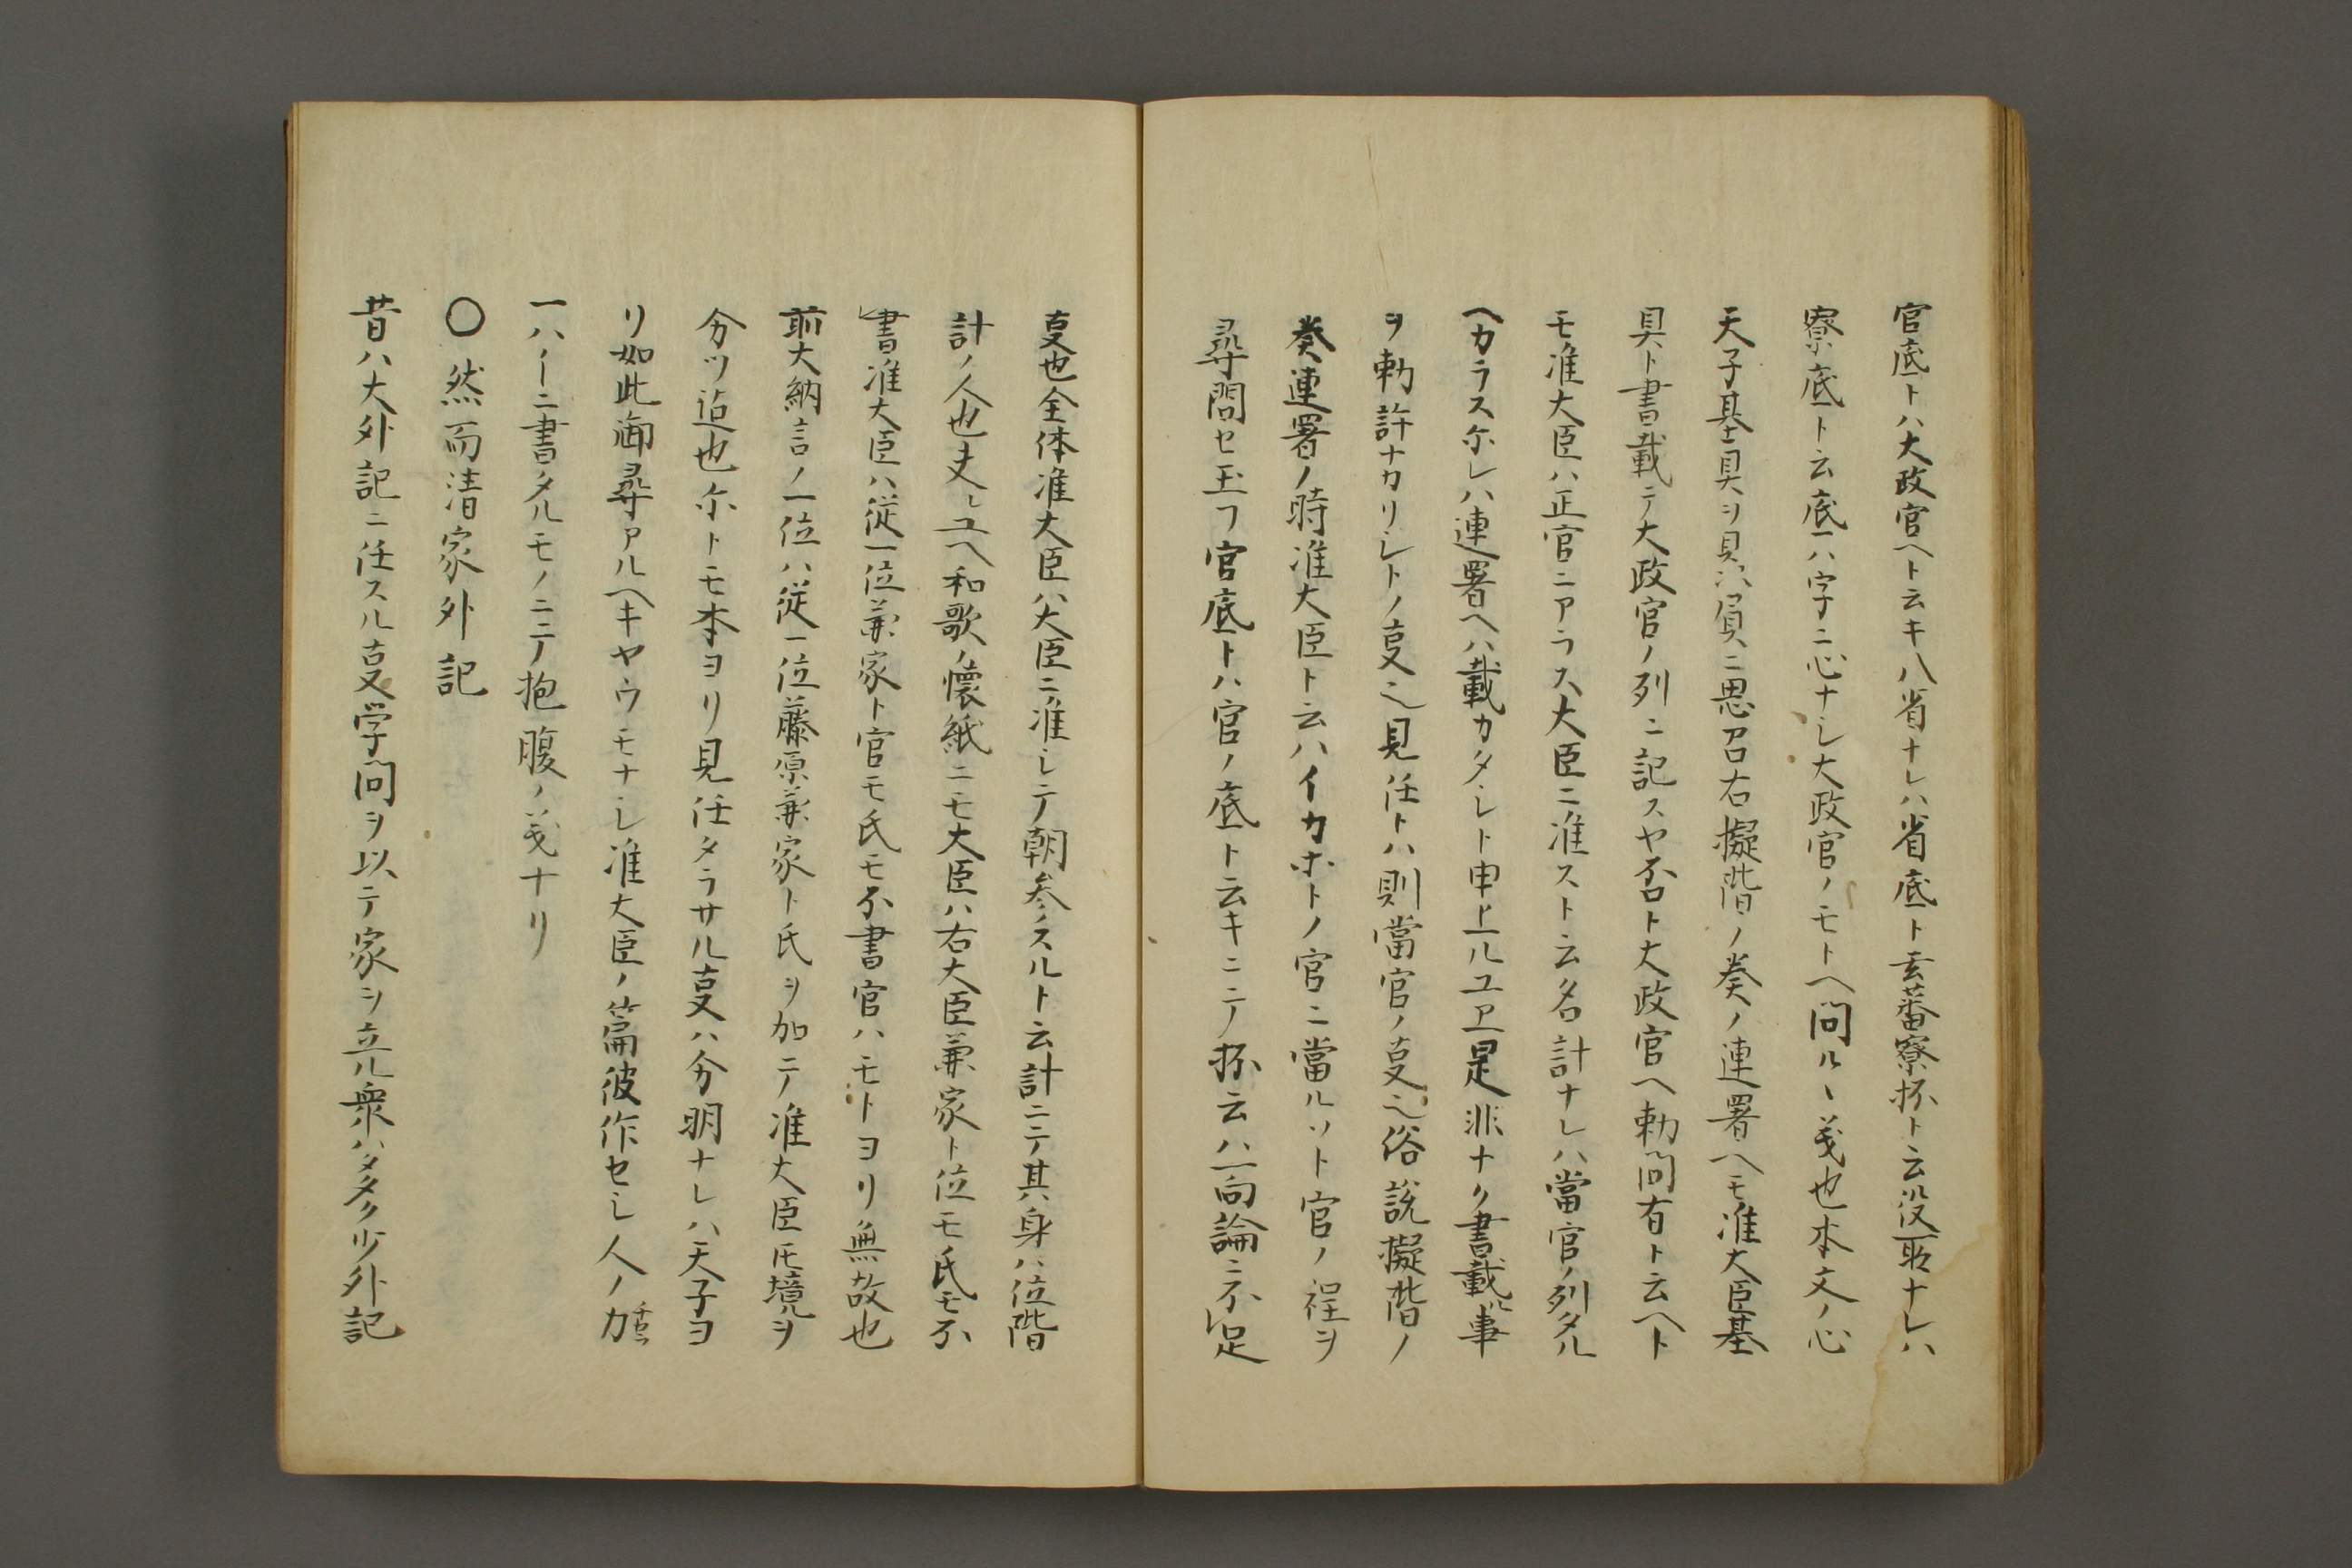 官底トハ大政官ヘト云キ八省ナレハ省底ト玄蕃寮抔ト云役所ナレハ
寮底ト云底ハ字ニ心ナシ大政官ノモトヘ問ルヽ義也本文ノ心
天子基具ヲ具ハ員ニ思召右擬階ノ奏ノ連署ヘモ准大臣基
具ト書載テ大政官ノ列ニ記スヤ否ト大政官ヘ勅問有ト云ヘト
モ准大臣ハ正官ニアラス大臣ニ准スト云名計ナレハ當官ノ列タル
ヘカラス尓レハ連署ヘハ載カタシト申上ルユヱ是非ナク書載ル事
ヲ勅許ナカリシトノ叓也見任トハ則當官ノ叓也俗説擬階ノ
奏連署ノ時准大臣ト云ハイカホトノ官ニ當ルソト官ノ程ヲ
尋問セ玉フ官底トハ官ノ底ト云キニテ抔云ハ一向論ニ不足
叓也全体准大臣ハ大臣ニ准シテ朝参スルト云計ニテ其身ハ位階
計ノ人也夫レユヘ和歌ノ懐紙ニモ大臣ハ右大臣兼家ト位モ氏モ不
書准大臣ハ従一位兼家ト官モ氏モ不書官ハモトヨリ無故也
前大納言ノ一位ハ従一位藤原兼家ト氏ヲ加ニテ准大臣ト境ヲ
分ツ迠也尓トモ本ヨリ見任タラサル叓ハ分明ナレハ天子ヨ
リ如此御尋アルヘキヤウモナシ准大臣ノ篇彼作セシ人ノ力
一ハーニ書タルモノニテ抱腹ノ義ナリ
〇然而清家外記
昔ハ大外記ニ任スル叓学問ヲ以テ家ヲ立ル衆ハタタク少外記